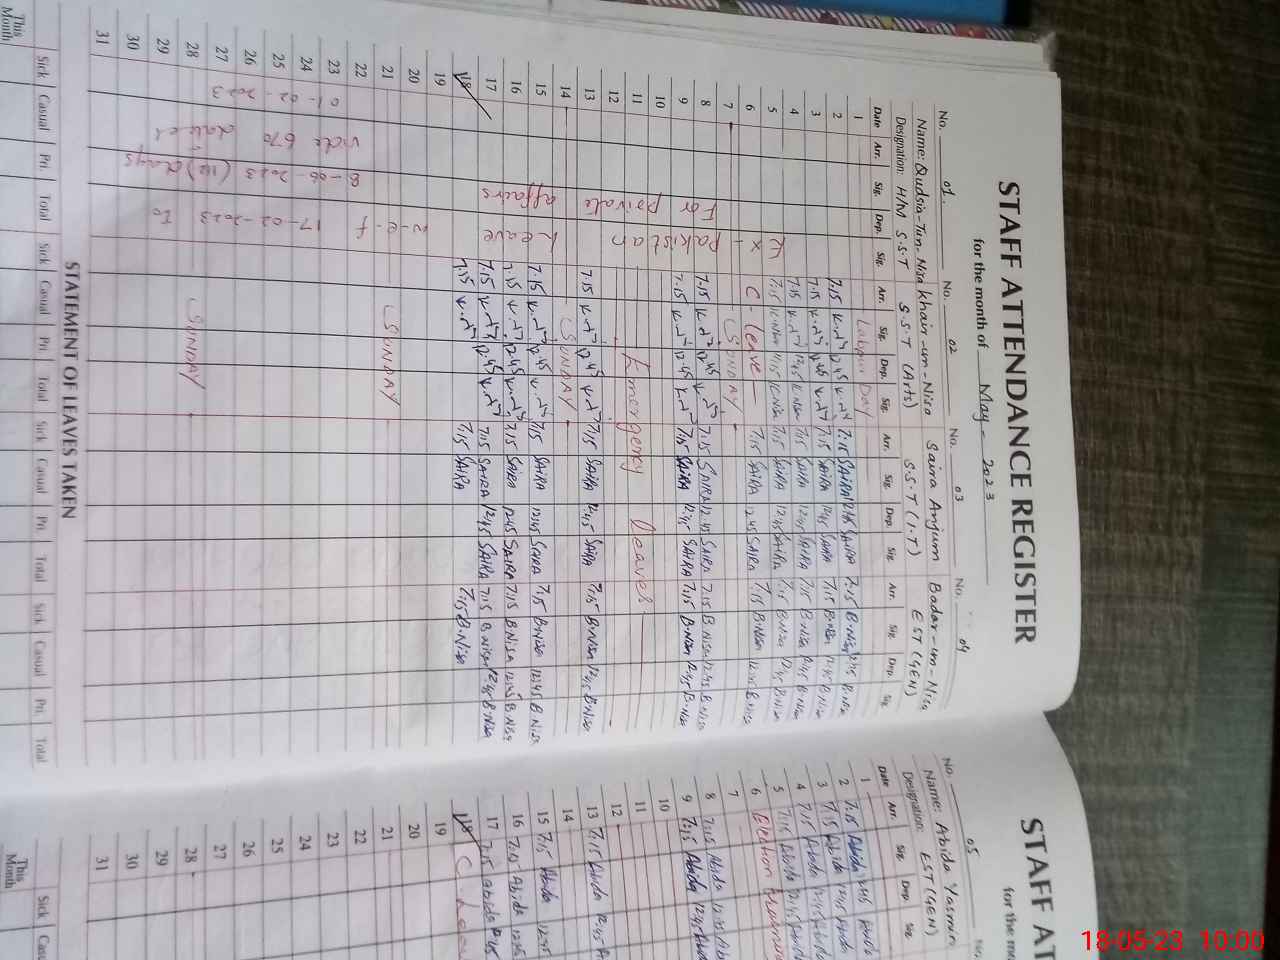 STAFF ATTENDANCE REGISTER
for the month of May - 2023
No. 01. No. 02 No. 03 No. 04
Name: Qudsia-Tun-Nisa Khair-un-Nisa Saira Anjum Badar-un-Nisa
Designation: H/M S.S.T S.S.T (Arts) S.S.T (I.T) EST (GEN)
Date Arr. Sig. Dep. Sig. Arr. Sig. Dep. Sig. Arr. Sig. Dep. Sig. Arr. Sig. Dep. Sig.
1 Labour Day
2 7.15 12.45 7.15 SAIRA 12.45 SAIRA 7.15 B.Nisa 12.45 B.Nisa
3 7.15 12.45 7.15 SAIRA 12.45 SAIRA 7.15 B.Nisa 12.45 B.Nisa
4 7.15 12.45 K.Nisa 7.15 SAIRA 12.45 SAIRA 7.15 B.Nisa 12.45 B.Nisa
5 7.15 K.Nisa 11.15 K.Nisa 7.15 SAIRA 12.45 SAIRA 7.15 B.Nisa 12.45 B.Nisa
6 C - leave 7.15 SAIRA 12.45 SAIRA 7.15 B.Nisa 12.45 B.Nisa
7 SUNDAY
8 7.15 12.45 7.15 SAIRA 12.45 SAIRA 7.15 B.Nisa 12.45 B.Nisa
9 7.15 12.45 7.15 SAIRA 12.45 SAIRA 7.15 B.Nisa 12.45 B.Nisa
10
11 Emergency leaves
12
13 7.15 12.45 7.15 SAIRA 12.45 SAIRA 7.15 B.Nisa 12.45 B.Nisa
14 SUNDAY
15 7.15 12.45 7.15 SAIRA 12.45 SAIRA 7.15 B.Nisa 12.45 B.Nisa
16 7.15 12.45 7.15 SAIRA 12.45 SAIRA 7.15 B.Nisa 12.45 B.Nisa
17 7.15 12.45 7.15 SAIRA 12.45 SAIRA 7.15 B.Nisa 12.45 B.Nisa
18 7.15 7.15 SAIRA 7.15 B.Nisa
19
20
21 SUNDAY
22
23
24
25
26
27
28 SUNDAY
29
30
31
Ex - Pakistan Leave w-e-f 17-02-2023 To
For private affairs 8-06-2023 (112) days
vide 670 dated
01-02-2023
STATEMENT OF LEAVES TAKEN
Sick Casual Pri. Total Sick Casual Pri. Total Sick Casual Pri. Total Sick Casual Pri. Total
This Month
STAFF AT
for the
No. 05 No.
Name: Abida Yasmin
Designation: EST (GEN)
Date Arr. Sig. Dep. Sig.
1
2 7.15 Abida 12.45 Abida
3 7.15 Abida 12.45 Abida
4 7.15 Abida 12.45 Abida
5 7.15 Abida 12.45 Abida
6 Election
7
8 7.15 Abida 12.45 Ab
9 7.15 Abida 12.45 Abida
10
11
12
13 7.15 Abida 12.45 A
14
15 7.15 Abida 12.45
16 7.15 Abida 12.45
17 7.15 Abida 12.45
18 C. Leav
19
20
21
22
23
24
25
26
27
28
29
30
31
Sick Cas
This Month
18-05-23 10:00